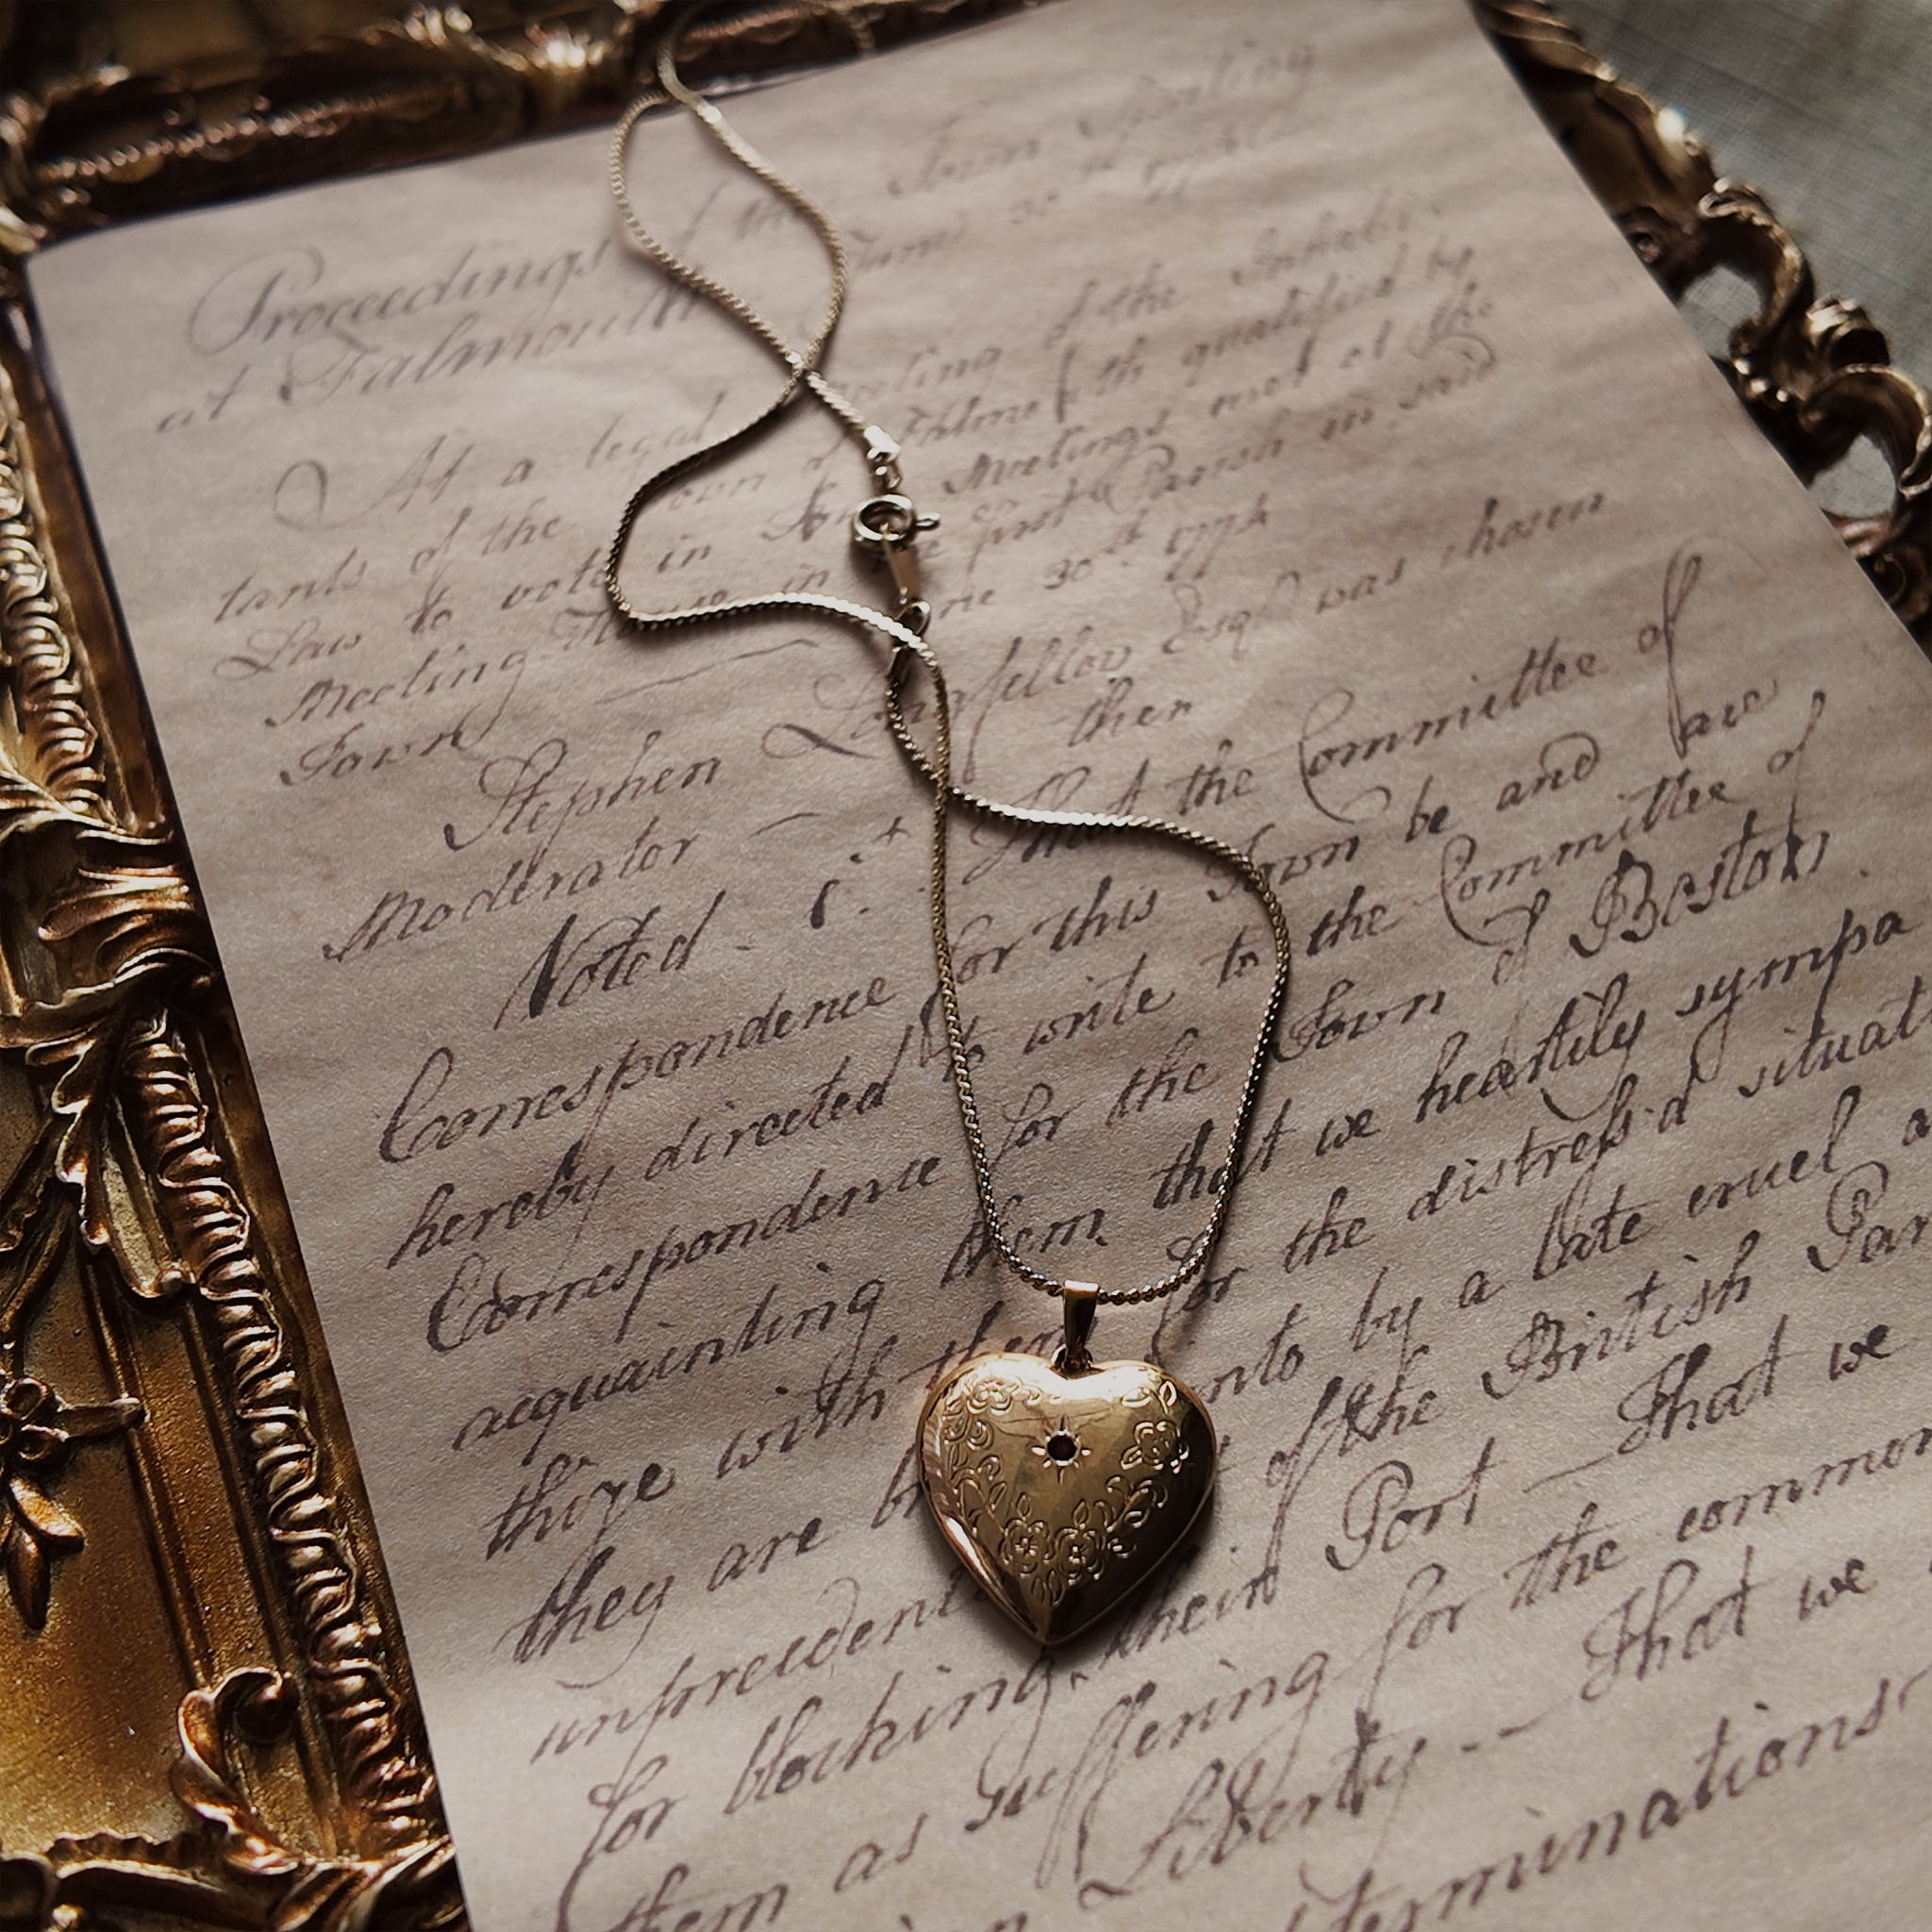 Proceedings of the Town Meeting
at Falmouth June 30th
At a legal meeting of the Inhabi-
tants of the Town of Falmouth qualified by
Law to vote in Town Meetings met at the
Meeting House in the first Parish in said
Town June 30th 1774
Stephen Longfellow Esqr was chosen
Moderator then
Voted - 1st. That the Committee of
Correspondence for this Town be and are
hereby directed to write to the Committee of
Correspondence for the Town of Boston
acquainting them that we heartily sympa
thize with them for the distress'd situat
they are bro unto by a late cruel a
unprecedent of the British Par
for blocking their Port - That we
them as suffering for the common
Liberty - - That we
terminations